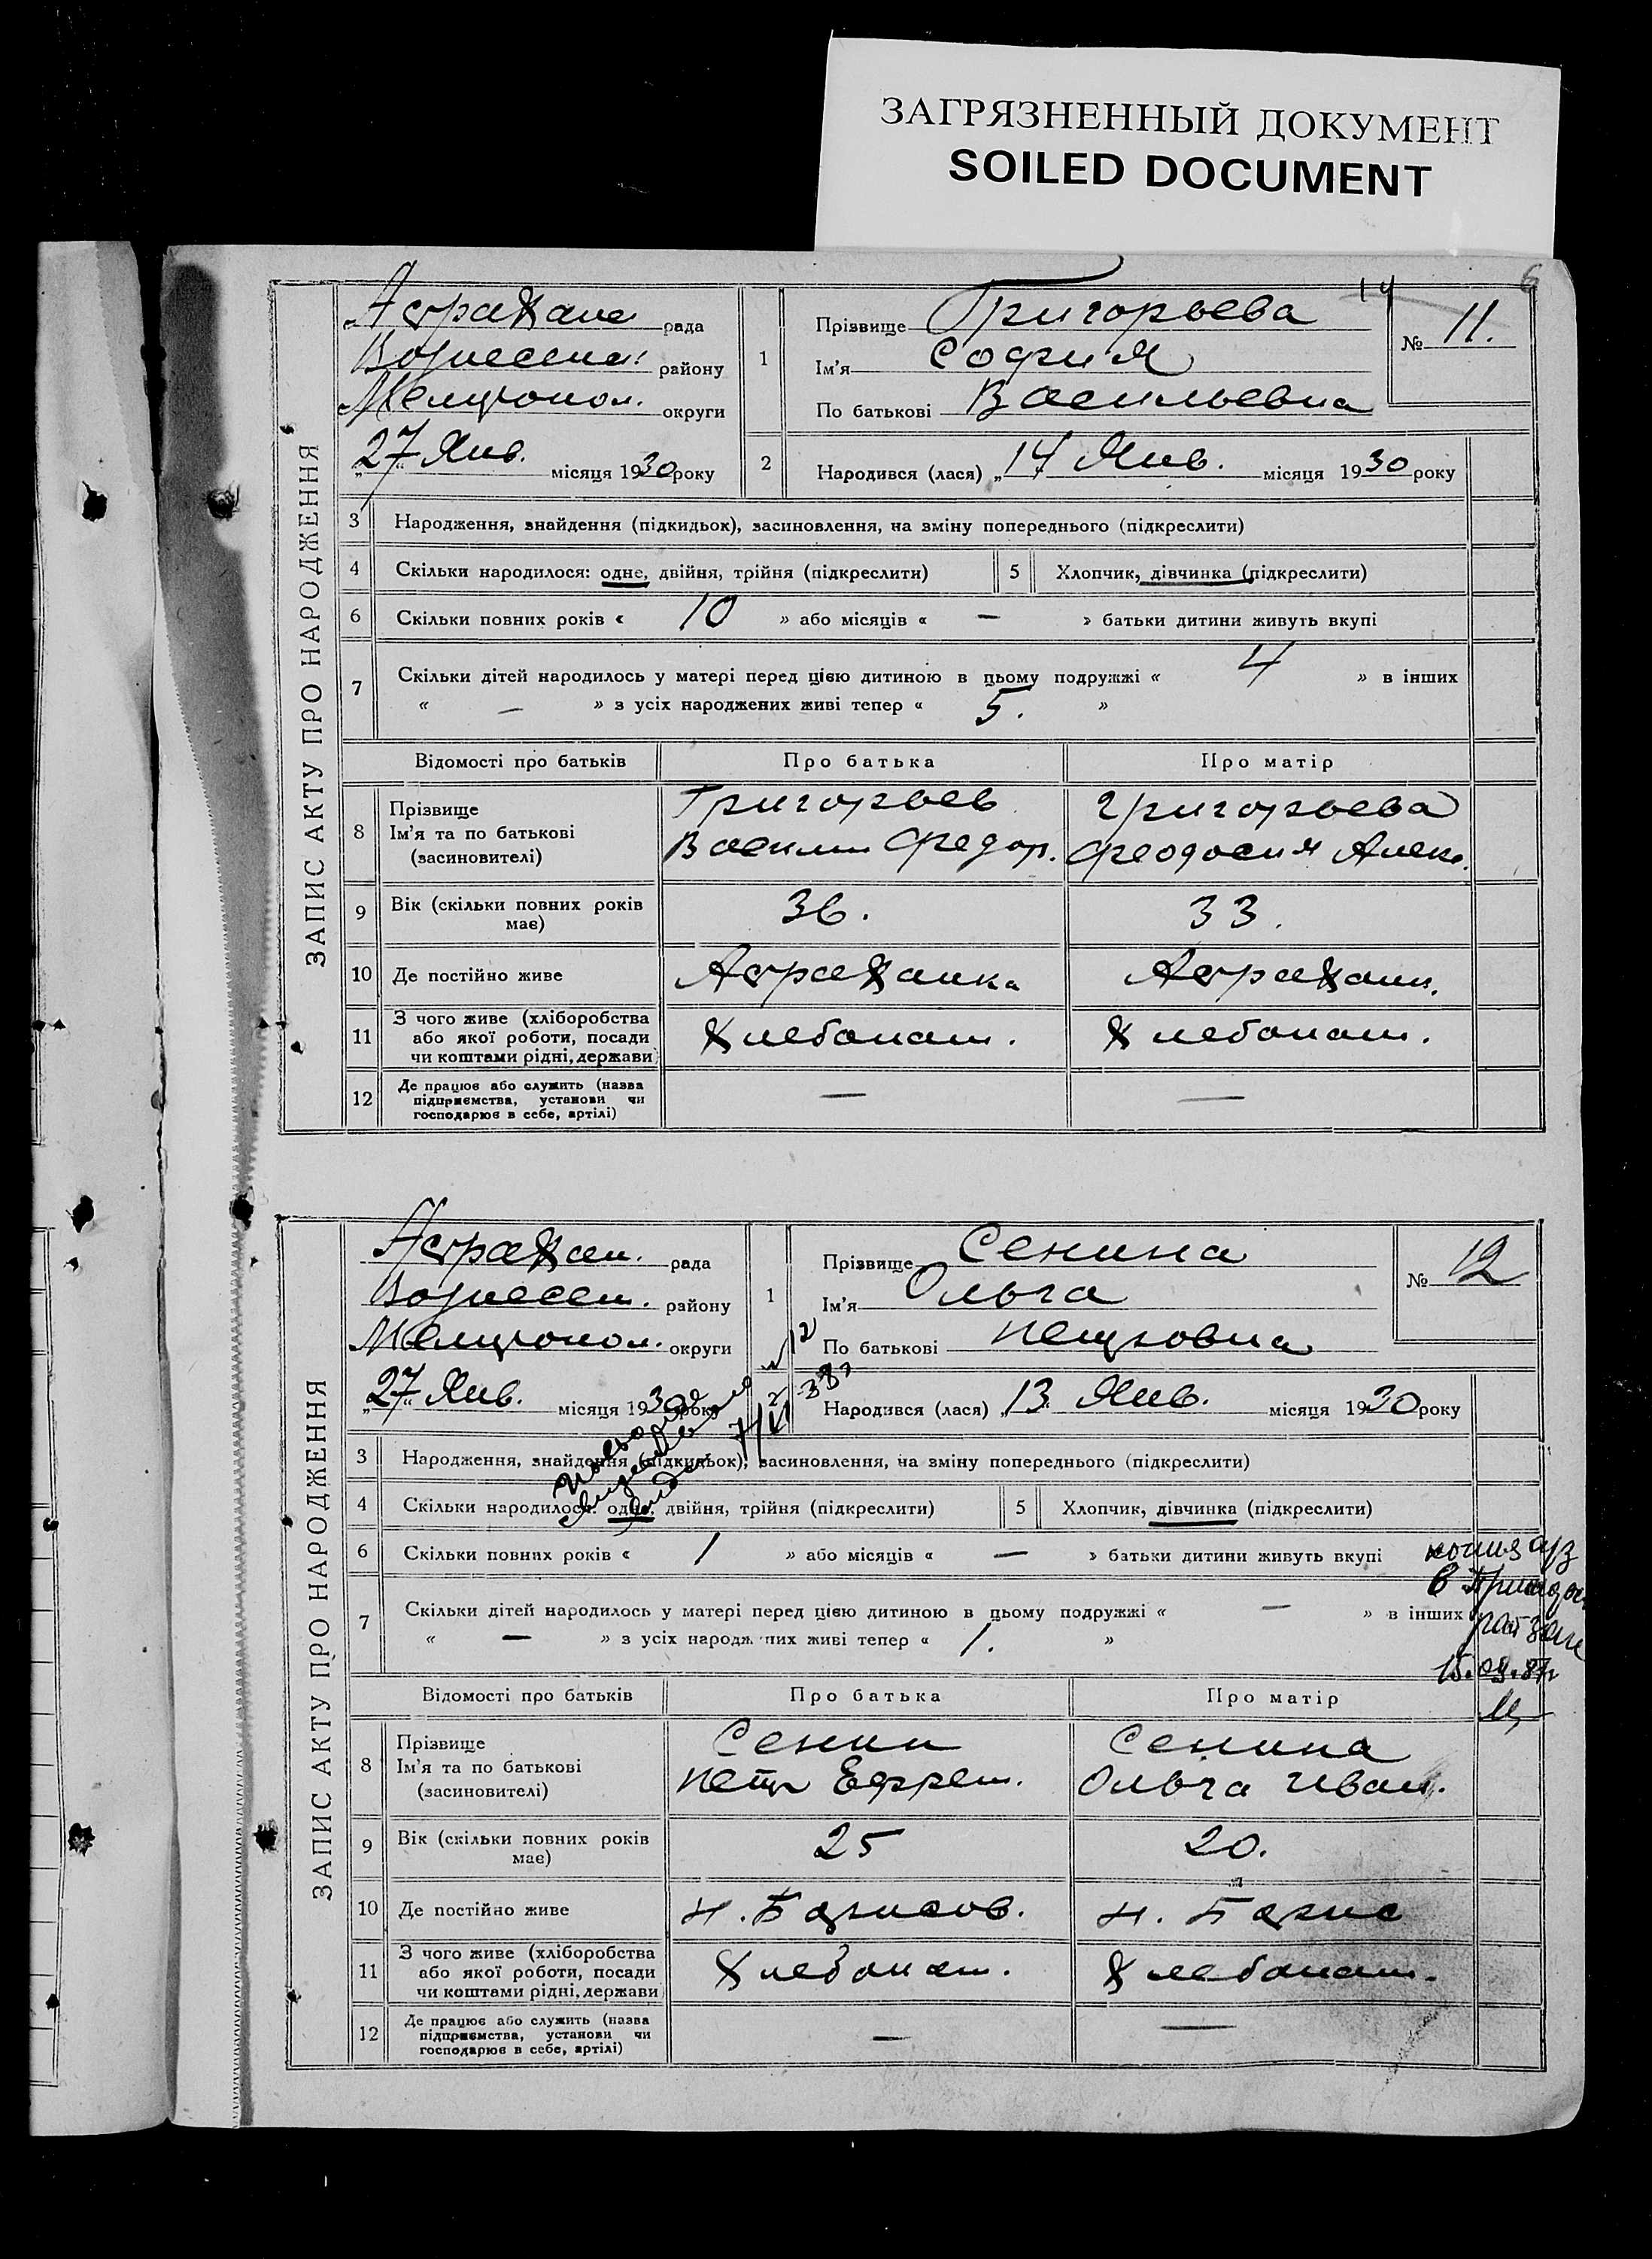 ЗАГРЯЗНЕННЫЙ ДОКУМЕНТ
SOILED DOCUMENT
6
14
ЗАПИС АКТУ ПРО НАРОДЖЕННЯ
Астрахан рада
Вознесен. району
Мелитопол. округи
„27" Янв. місяця 1930 року
1 Прізвище Григорьева
Ім'я София
По батькові Васильевна
№ 11.
2 Народився (лася) „14" Янв. місяця 1930 року
3 Народження, знайдення (підкидьок), засиновлення, на зміну попереднього (підкреслити)
4 Скільки народилося: одне, двійня, трійня (підкреслити) 5 Хлопчик, дівчинка (підкреслити)
6 Скільки повних років « 10 » або місяців « — » батьки дитини живуть вкупі
7 Скільки дітей народилось у матері перед цією дитиною в цьому подружжі « 4 » в інших
« — » з усіх народжених живі тепер « 5. »
Відомості про батьків Про батька Про матір
8 Прізвище Ім'я та по батькові (засиновителі)
Григорьев Григорьева
Василий Федор. Феодосия Алекс.
9 Вік (скільки повних років має) 36. 33.
10 Де постійно живе Астраханка Астраханк.
11 З чого живе (хліборобства або якої роботи, посади чи коштами рідні, держави) Хлебопаш. Хлебопаш.
12 Де працює або служить (назва підприємства, установи чи господарює в себе, артілі) — —
ЗАПИС АКТУ ПРО НАРОДЖЕННЯ
Астрахан. рада
Вознесен. району
Мелитопол. округи
„27" Янв. місяця 1930 року
1 Прізвище Сенина
Ім'я Ольга
По батькові Петровна
№ 12
2 Народився (лася) „13" Янв. місяця 1930 року
3 Народження, знайдення (підкидьок), засиновлення, на зміну попереднього (підкреслити)
4 Скільки народилося: одне, двійня, трійня (підкреслити) 5 Хлопчик, дівчинка (підкреслити)
6 Скільки повних років « 1 » або місяців « — » батьки дитини живуть вкупі
7 Скільки дітей народилось у матері перед цією дитиною в цьому подружжі « — » в інших
« — » з усіх народжених живі тепер « 1. »
копия
в
15.09.87г
Відомості про батьків Про батька Про матір
8 Прізвище Ім'я та по батькові (засиновителі)
Сенин Сенина
Петр Ефрем. Ольга Иван.
9 Вік (скільки повних років має) 25 20.
10 Де постійно живе Н. Борисов. Н. Борис
11 З чого живе (хліборобства або якої роботи, посади чи коштами рідні, держави) Хлебопаш. Хлебопаш.
12 Де працює або служить (назва підприємства, установи чи господарює в себе, артілі) — —